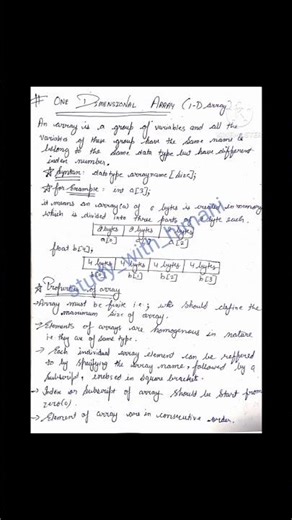 # ONE DIMENSIONAL ARRAY (1-D array)
An array is a group of variables and all the
variables of these group have the same name &
belong to the same data type but have different
index number.
Syntax: datatype arrayname [size];
for Example: int a[3];
it means an array(a) of 6 bytes is created in memory
which is divided into three parts byte each.
2 bytes 2 bytes bytes
a[0] a[2]
float b[4];
4 bytes 4 bytes 4 bytes 4 bytes
b[1] b[2] b[3]
Properties of array
Array must be finite i.e; we should define the
maximum size of array.
→ Elements of arrays are homogenous in nature
i.e they are of same type.
→ Each individual array element can be reffered
to by specifying the array name, followed by a
subscript, enclosed in square bracket.
→ Index or subscript of array should be start from
zero(0).
→ Element of array are in consecutive order.
study_with_himani